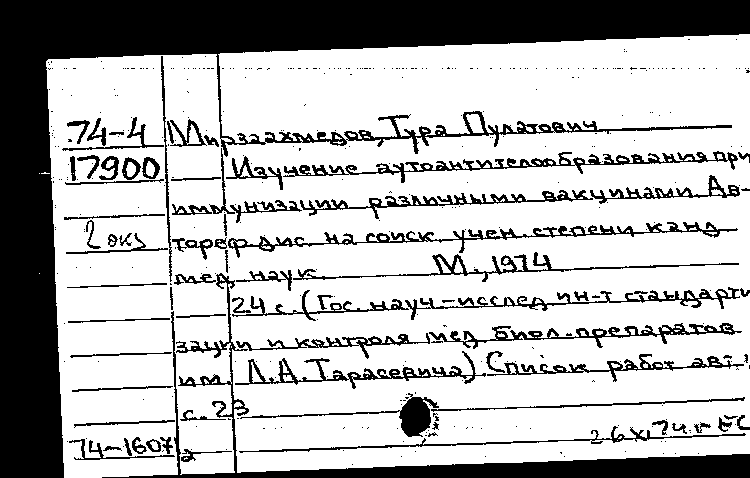 74-4 Мирзаахмедов, Тура Пулатович.
17900 Изучение аутоантителообразования при
иммунизации различными вакцинами. Ав-
2 экз тореф дис. на соиск. учен. степени канд
мед. наук. М., 1974
24 с. (Гос. науч-исслед ин-т стандарти
зации и контроля мед биол. препаратов
им. Л.А. Тарасевича) Список работ авт.:
с. 23
74-1607 а 26 XI 74 г